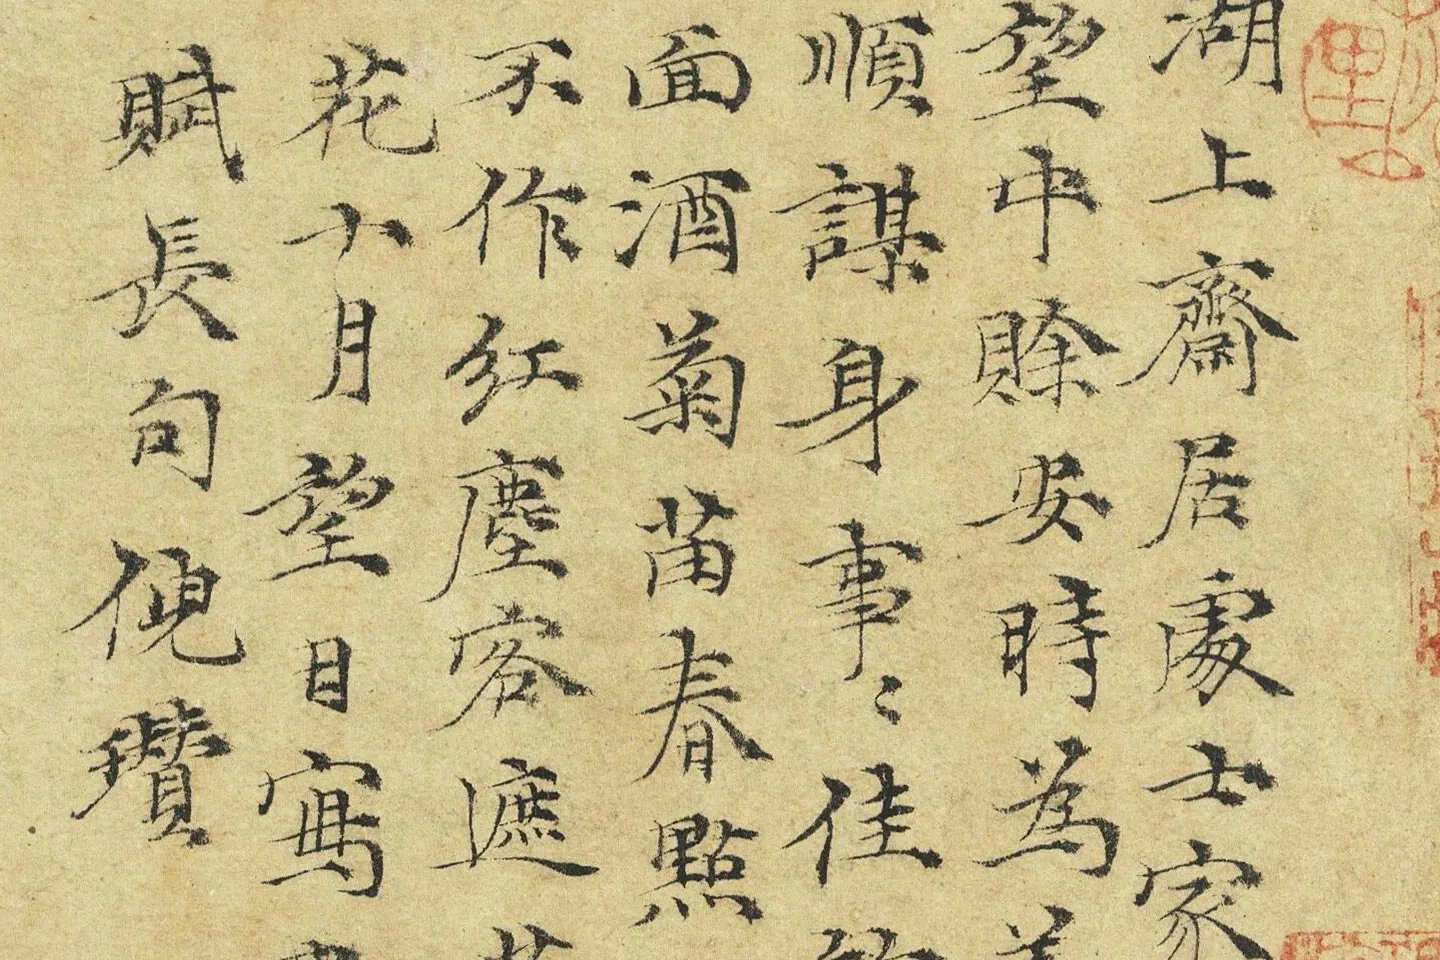 湖上齋居處士家
望中賒安時為善
順謀身事々佳
面酒菊苗春點
不作紅塵客遮
花十月望日寫
賦長句倪瓚